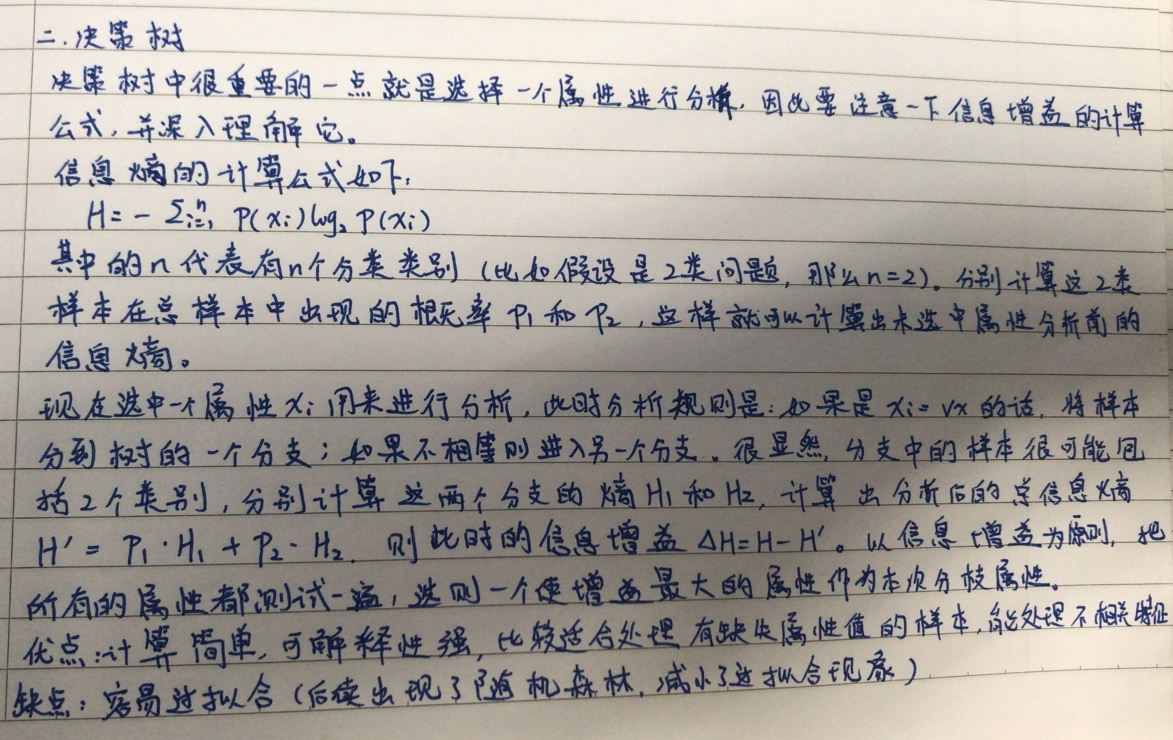 二.决策树
决策树中很重要的一点就是选择一个属性进行分析，因此要注意一下信息增益的计算
公式，并深入理解它。
信息熵的计算公式如下：
H=-Σⁿᵢ₌₁ P(xi)log₂P(xi)
其中的n代表有n个分类类别（比如假设是2类问题，那么n=2）。分别计算这2类
样本在总样本中出现的概率P₁和P₂，这样就可以计算出未选中属性分析前的
信息熵。
现在选中一个属性xi用来进行分析，此时分析规则是：如果是xi=vx的话，将样本
分到树的一个分支；如果不相等则进入另一个分支。很显然，分支中的样本很可能包
括2个类别，分别计算这两个分支的熵H₁和H₂，计算出分析后的总信息熵
H′=P₁·H₁+P₂·H₂，则此时的信息增益ΔH=H-H′。以信息增益为原则，把
所有的属性都测试一遍，选则一个使增益最大的属性作为本次分枝属性。
优点：计算简单，可解释性强，比较适合处理有缺失属性值的样本，能处理不相关特征
缺点：容易过拟合（后续出现了随机森林，减小了过拟合现象）